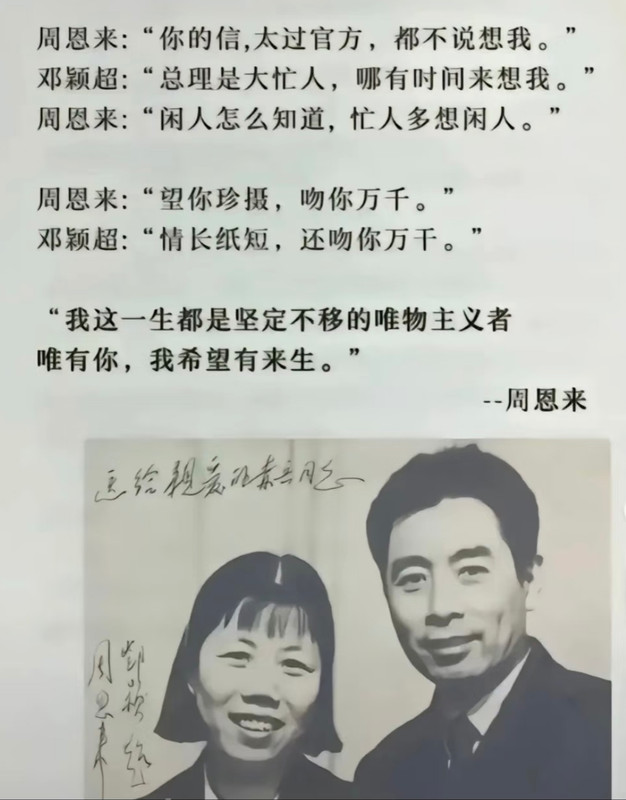 周恩来：“你的信,太过官方，都不说想我。”
邓颖超：“总理是大忙人，哪有时间来想我。”
周恩来：“闲人怎么知道，忙人多想闲人。”
周恩来：“望你珍摄，吻你万千。”
邓颖超：“情长纸短，还吻你万千。”
“我这一生都是坚定不移的唯物主义者
唯有你，我希望有来生。”
--周恩来
送给亲爱的 同志
邓颖超
周恩来